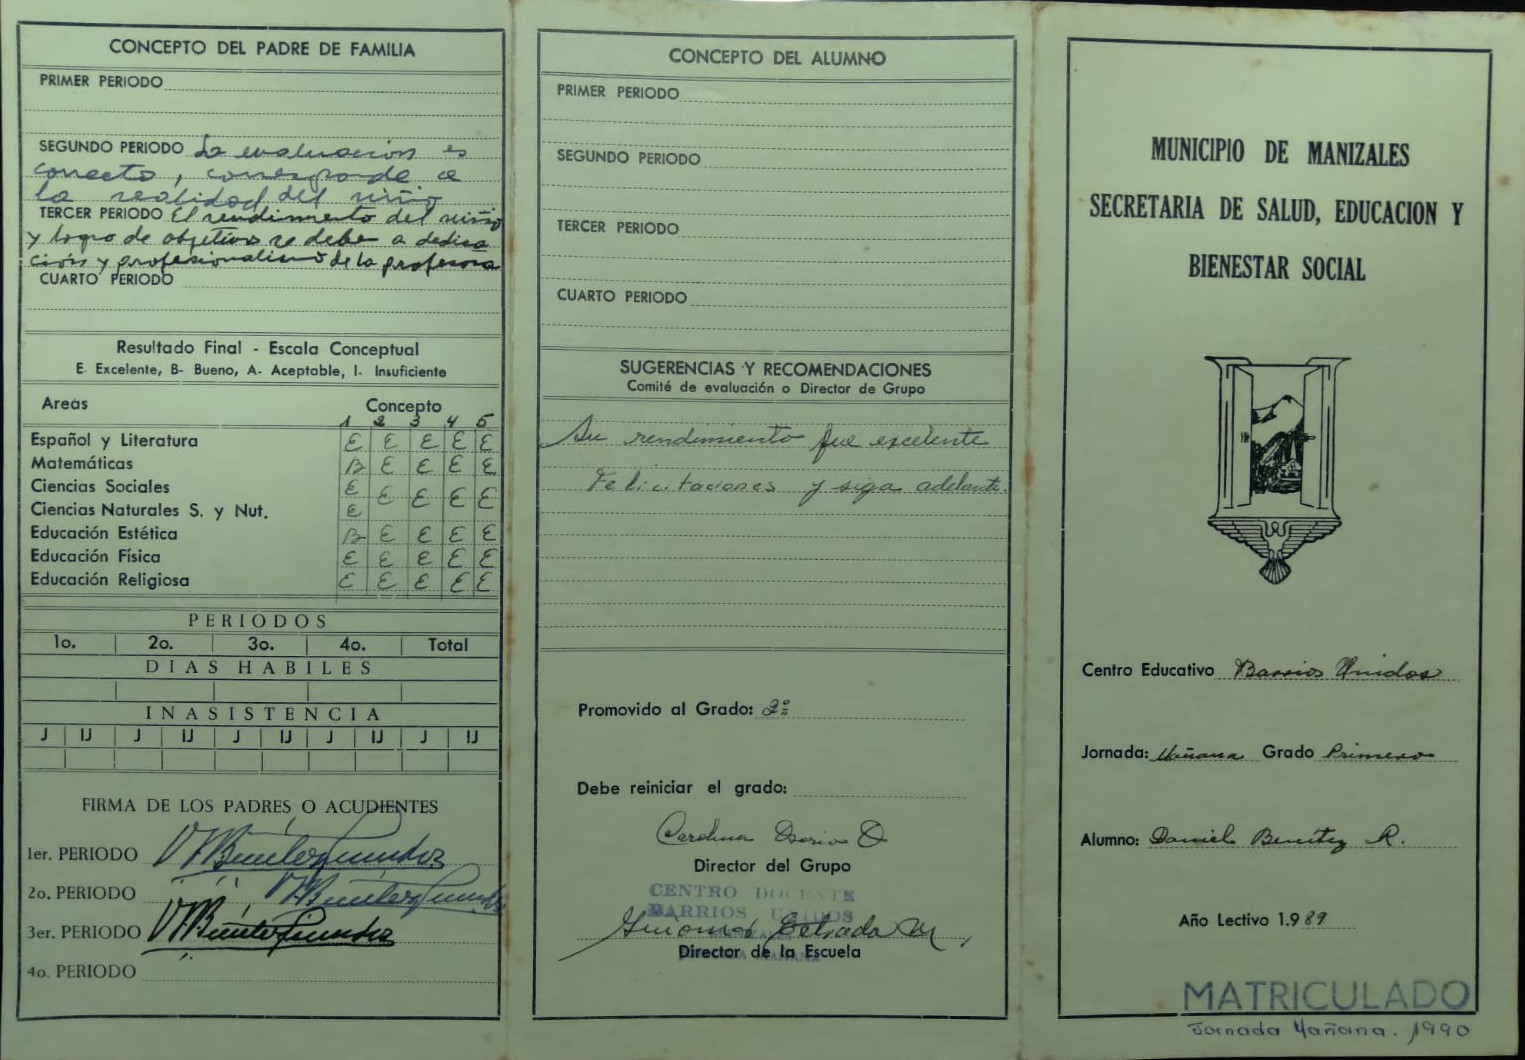 CONCEPTO DEL PADRE DE FAMILIA
PRIMER PERIODO
SEGUNDO PERIODO La evaluación es
correcta, corresponde a
la realidad del niño
TERCER PERIODO El rendimiento del niño
y logro de objetivos se debe a dedica
ción y profesionalismo de la profesora
CUARTO PERIODO
Resultado Final - Escala Conceptual
E- Excelente, B- Bueno, A- Aceptable, I- Insuficiente
Areas Concepto
1 2 3 4 5
Español y Literatura E E E E E
Matemáticas B E E E E
Ciencias Sociales E
E E E E
Ciencias Naturales S. y Nut. E
Educación Estética B E E E E
Educación Física E E E E E
Educación Religiosa E E E E E
PERIODOS
1o. 2o. 3o. 4o. Total
DIAS HABILES
INASISTENCIA
J IJ J IJ J IJ J IJ J IJ
FIRMA DE LOS PADRES O ACUDIENTES
1er. PERIODO
2o. PERIODO
3er. PERIODO
4o. PERIODO
CONCEPTO DEL ALUMNO
PRIMER PERIODO
SEGUNDO PERIODO
TERCER PERIODO
CUARTO PERIODO
SUGERENCIAS Y RECOMENDACIONES
Comité de evaluación o Director de Grupo
Su rendimiento fue excelente
Felicitaciones y siga adelante.
Promovido al Grado: 2º
Debe reiniciar el grado:
Carolina Osorio O
Director del Grupo
CENTRO DOCENTE
BARRIOS UNIDOS
Estrada M,
Director de la Escuela
MUNICIPIO DE MANIZALES
SECRETARIA DE SALUD, EDUCACION Y
BIENESTAR SOCIAL
Centro Educativo Barrios Unidos
Jornada: Mañana Grado Primero
Alumno: Daniel Benítez R.
Año Lectivo 1.989
MATRICULADO
Jornada Mañana. 1990